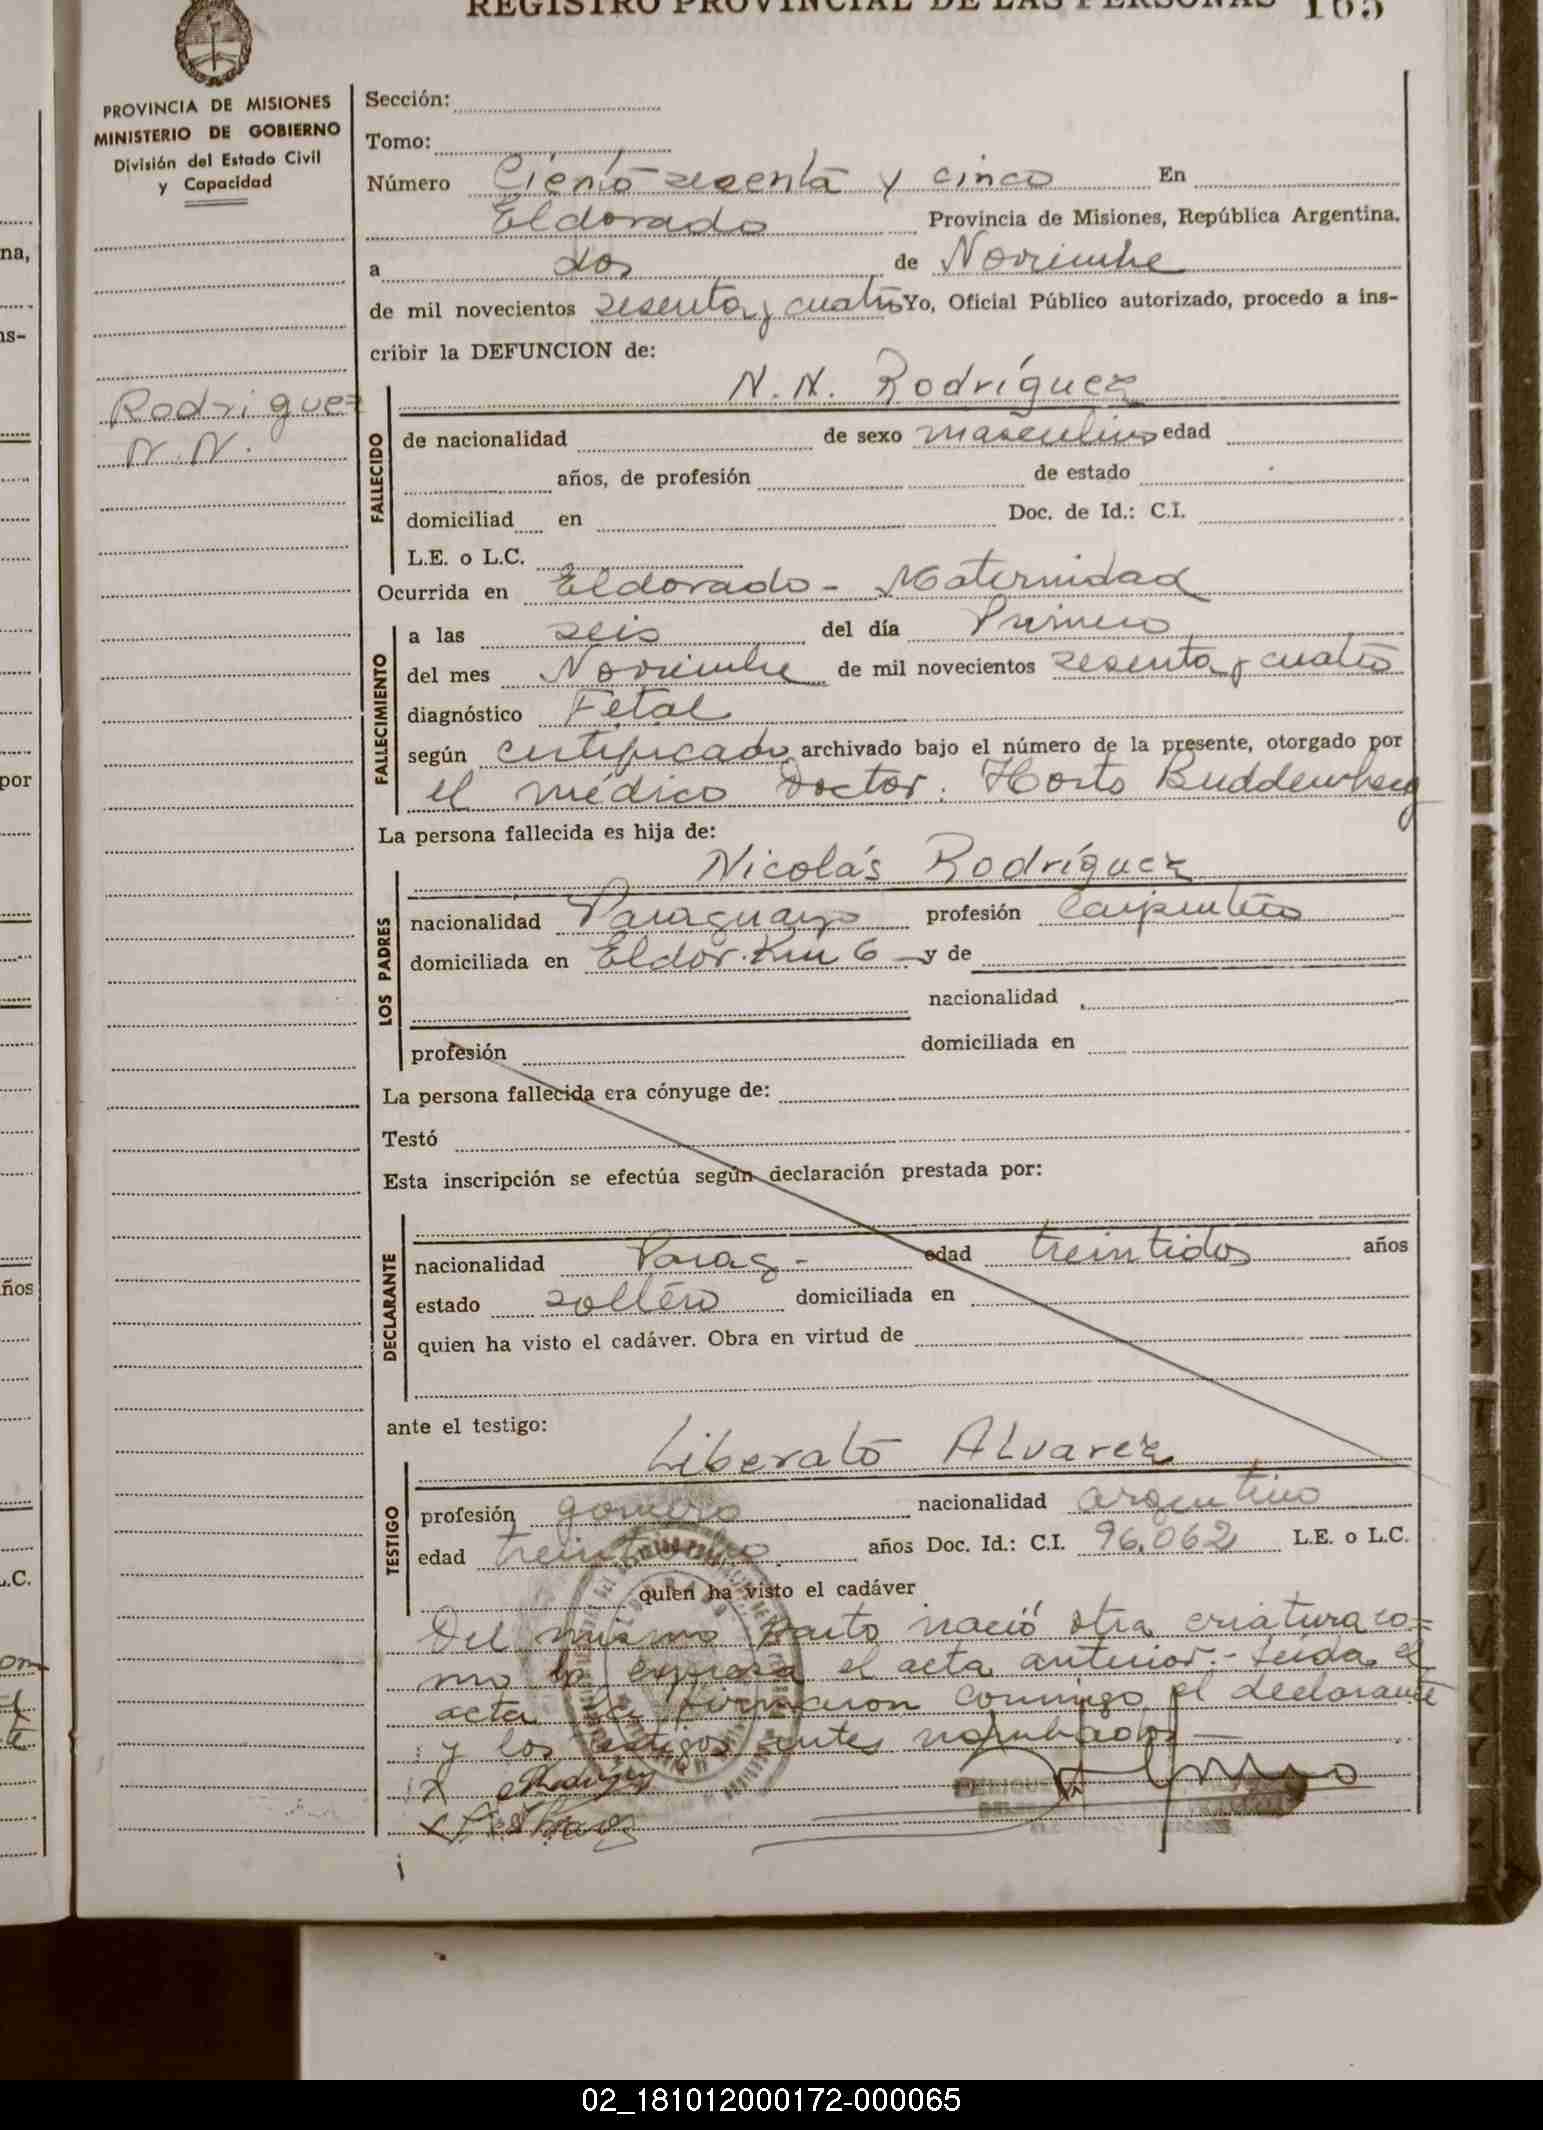 REGISTRO PROVINCIAL DE LAS PERSONAS 165
PROVINCIA DE MISIONES
MINISTERIO DE GOBIERNO
División del Estado Civil
y Capacidad
Rodriguez
N.N.
Sección:
Tomo:
Número Ciento sesenta y cinco En
Eldorado Provincia de Misiones, República Argentina,
a dos de Noviembre
de mil novecientos sesenta y cuatro Yo, Oficial Público autorizado, procedo a ins-
cribir la DEFUNCION de:
N. N. Rodríguez
FALLECIDO
de nacionalidad de sexo masculino edad
años, de profesión de estado
domiciliad en Doc. de Id.: C.I.
L.E. o L.C.
Ocurrida en Eldorado - Maternidad
FALLECIMIENTO
a las seis del día Primero
del mes Noviembre de mil novecientos sesenta y cuatro
diagnóstico Fetal
según certificado archivado bajo el número de la presente, otorgado por
el médico Doctor. Horts Buddenberg
La persona fallecida es hija de:
Nicolás Rodríguez
LOS PADRES
nacionalidad Paraguayo profesión Carpintero
domiciliada en Eldor. Km 6 y de
nacionalidad
profesión domiciliada en
La persona fallecida era cónyuge de:
Testó
Esta inscripción se efectúa según declaración prestada por:
DECLARANTE
nacionalidad Parag- edad treintidos años
estado soltero domiciliada en
quien ha visto el cadáver. Obra en virtud de
ante el testigo:
Liberato Alvarez
TESTIGO
profesión gomero nacionalidad argentino
edad años Doc. Id.: C.I. 96.062 L.E. o L.C.
quien ha visto el cadáver
Del mismo parto nació otra criatura co=
mo lo expresa el acta anterior.- Leida el
acta la firmaron conmigo el declarante
y los testigos antes nombrados
02_181012000172-000065